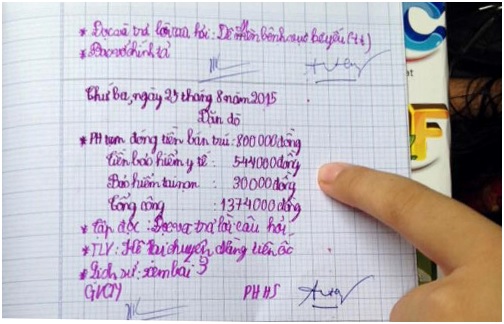 * Đọc và trả lời câu hỏi: Dế Mèn bênh vực kẻ yếu (tt)
* Đọc và chính tả
Thứ ba, ngày 25 tháng 8 năm 2015
Dặn dò
* PH tạm đóng tiền bán trú: 800 000 đồng
Tiền bảo hiểm y tế : 544000 đồng
Bảo hiểm tai nạn : 30000 đồng
Tổng cộng : 1374000 đồng
* Tập đọc: Đọc và trả lời câu hỏi
* TLV: Kể lại chuyện nàng tiên ốc
* Lịch sử: xem bài 3
GVCN PHHS